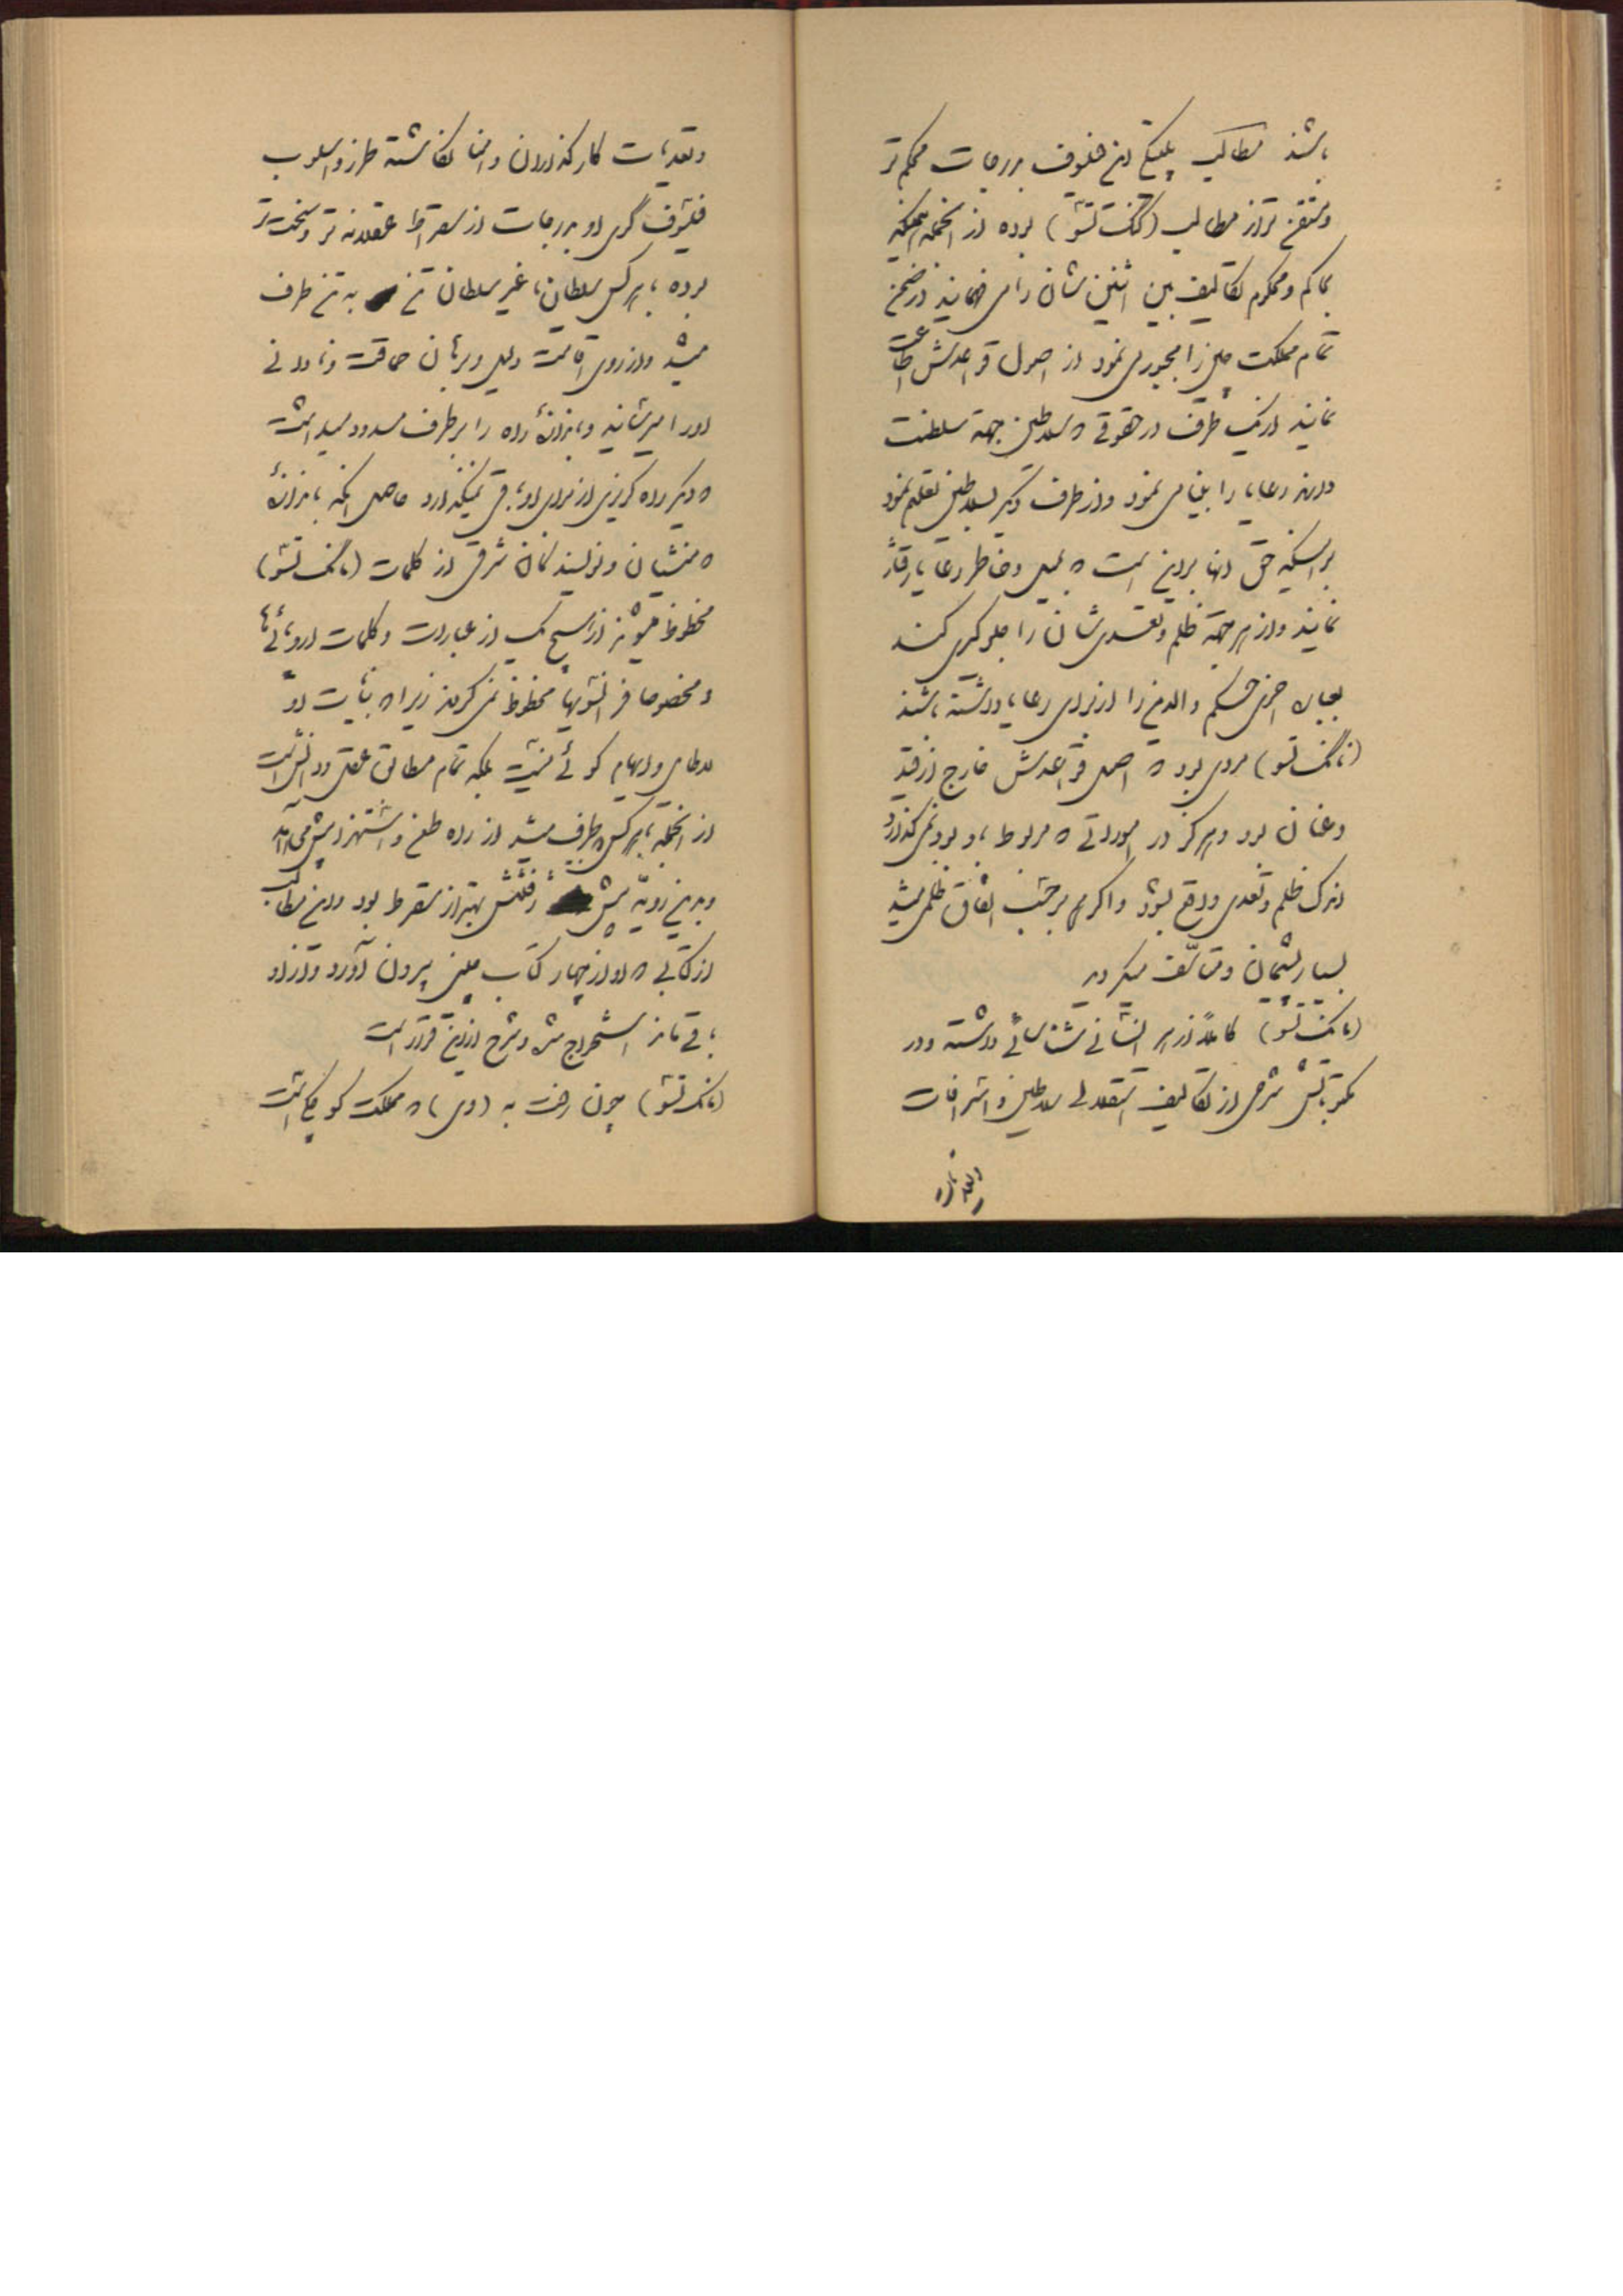 باشند مطالب پلتیکی این فیلسوف بدرجات محکم تر
و متقن تر از مطالب (کنگ تسو) بوده از آنجمله اینکه
بحاکم و محکوم تکالیف بین اثنین شان را می فهماند در ضمن
تمام مملکت چین را مجبور می نمود از اصول قواعدش اطاعت
نمایند از یک طرف در حقوقی که سلاطین جهة سلطنت
دارند رعایا را بینا می نمود و از طرف دیگر بسلاطین تعلیم نمود
براستیکه حق آنها بر این است که بمیل و خاطر رعایا رفتار
نمایند و از هر جهة ظلم و تعدی شان را جلوگیری کنند
بجای اجزای حکم والدین را از برای رعایا داشته باشند
(کنگ تسو) مردی بود که اصل قواعدش خارج از قید
و عنان بود و هرگز در اموراتی که مربوط باو بود نمی گذارد
اندک ظلم و تعدی واقع بشود و اگر هم بر حسب اتفاق ظلمی میشد
بسیار پشیمان و متأسف میگردید
(مانک تسو) کاملاً از هر انسانی شناسائی داشته و در
مکتوباتش شرحی از تکالیف استقلالی سلاطین و اشرافات
و تعدیات کارگذاران و امنا نگاشته طرز و اسلوب
فیلسوف گری او بدرجات از سقراط عقلانه تر و سخت تر
بوده با هر کس سلطان یا غیر سلطان تن به تن طرف
میشد و از روی اقامت دلیل و برهان حماقت و نادانی
او را میرسانید و ماهرانه راه را بر طرف مسدود میداشت
که دیگر راه گریزی از برای او باقی نمیگذارد حاصل آنکه ماهرانه
که منشیان و نویسندگان شرقی از کلمات (مانک تسو)
محظوظ میشوند از هیچ یک از عبارات و کلمات اروپائی ها
و مخصوصا فرانسویها محظوظ نمی گردند زیرا که بیانات او
لاطایل و ابهام گوئی نیست بلکه تمام مطابق عقل و دانش است
از آنجمله با هر کس که طرف میشد از راه طعن و استهزا پیش می آمد
و بدین رویه پیش رفتنش بهتر از سقراط بود و این مطالب
از کتابی که او از چهار کتاب چین بیرون آورد و از او
باقی مانده استخراج شده و شرح از این قرار است
(مانک تسو) چون رفت به (وی) که مملکت کوچکی است